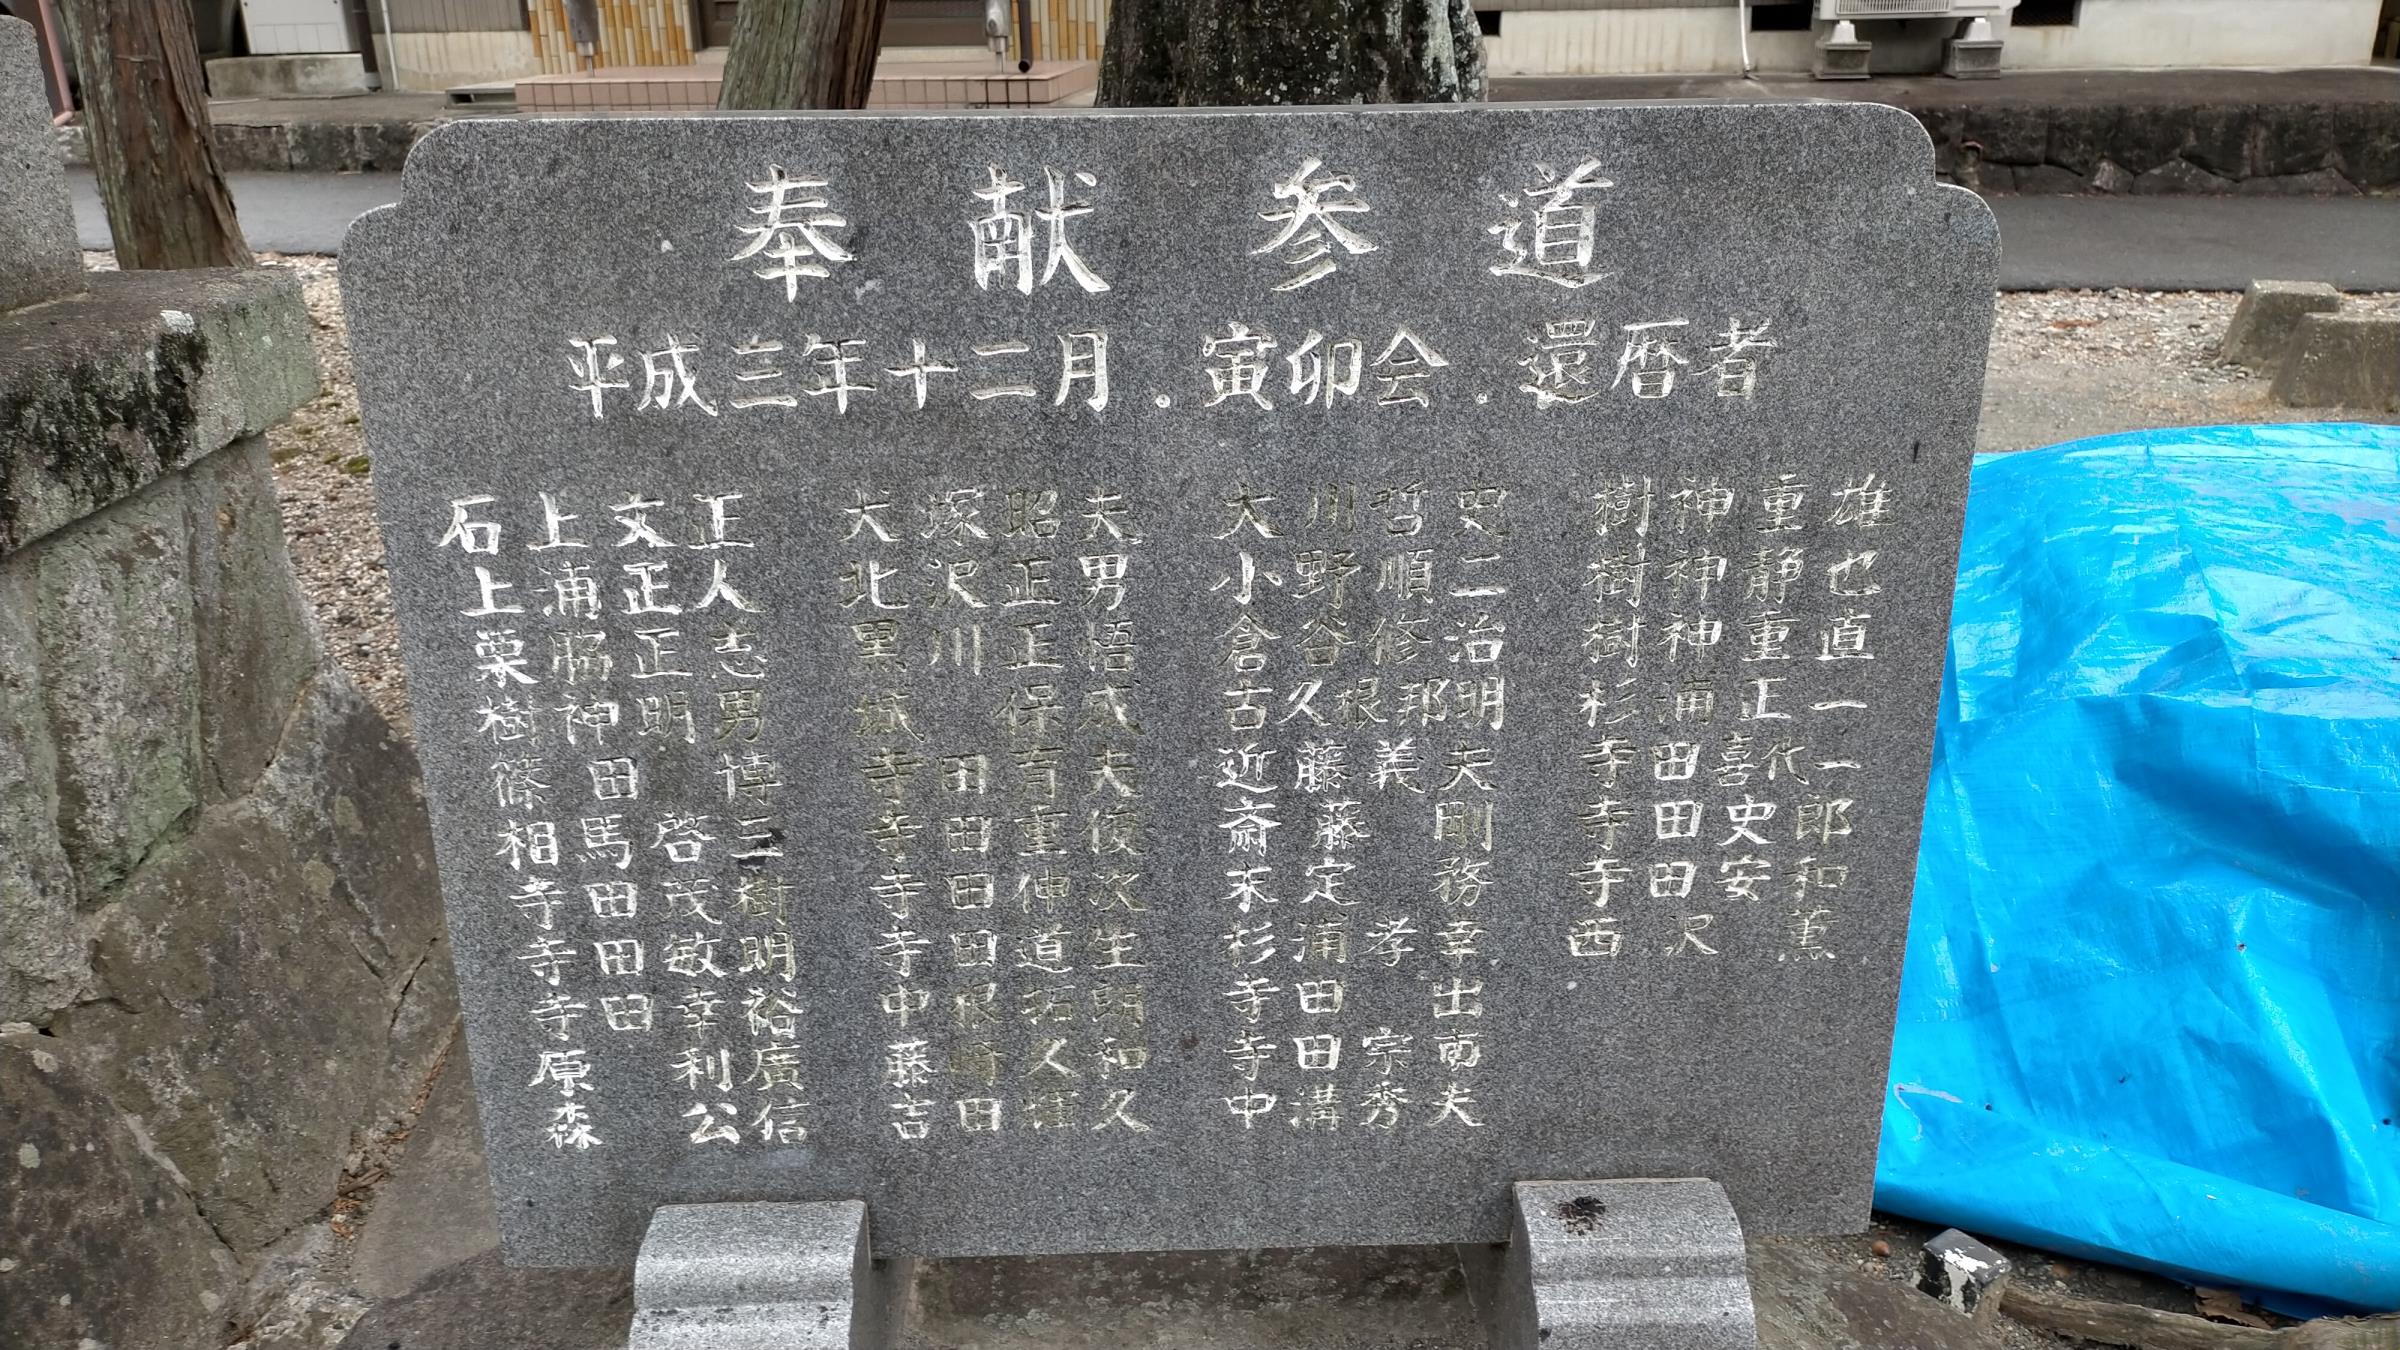 奉献参道
平成三年十二月.寅卯会.還暦者
石上文正
上浦正人
栗脇正志
樹神明男
篠田博
相馬啓三
寺田茂樹
寺田敏明
寺田幸裕
原利廣
森公信
犬塚昭夫
北沢正男
黒川正悟
城保成
寺田有夫
寺田重俊
寺田伸次
寺田道生
中根拓朗
藤崎久和
吉田輝久
大川哲史
小野順二
倉谷修治
古久根邦明
近藤義夫
斎藤剛
末定務
杉浦孝幸
寺田出
寺田宗南
中溝秀夫
樹神重雄
樹神静也
樹神重直
杉浦正一
寺田喜代一
寺田史郎
寺田安和
西沢薫